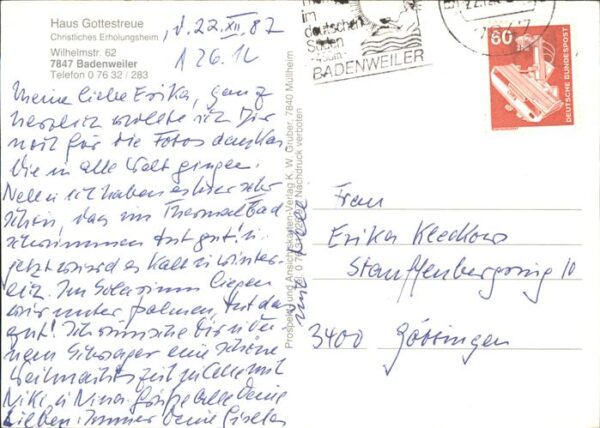 Haus Gottestreue
Christliches Erholungsheim
Wilhelmstr. 62
7847 Badenweiler
Telefon 0 76 32 / 283
d. 22. XII. 87
126.12
Meine liebe Erika, ganz
herzlich wollte ich Dir
noch für die Fotos danken
die in alle Welt gingen.
Nell u. ich haben es hier sehr
schön, das im Thermalbad
schwimmen tut gut!
jetzt wird es kalt u. winter-
lich. Im Solarium liegen
wir unter Palmen, tut das
gut! Ich wünsche Dir u.
Schwager eine schöne
Weihnachtszeit
Niki u. Nina. Grüße alle Deine
Lieben. Immer Deine Giselas
und Nell
Prospekt- und Ansichtskarten-Verlag K. W. Gruber, 7840 Müllheim
Nachdruck verboten
im
deutschen
Süden
BADENWEILER
60
DEUTSCHE BUNDESPOST
Frau
Erika Kleckow
Stauffenbergring 10
3400 Göttingen